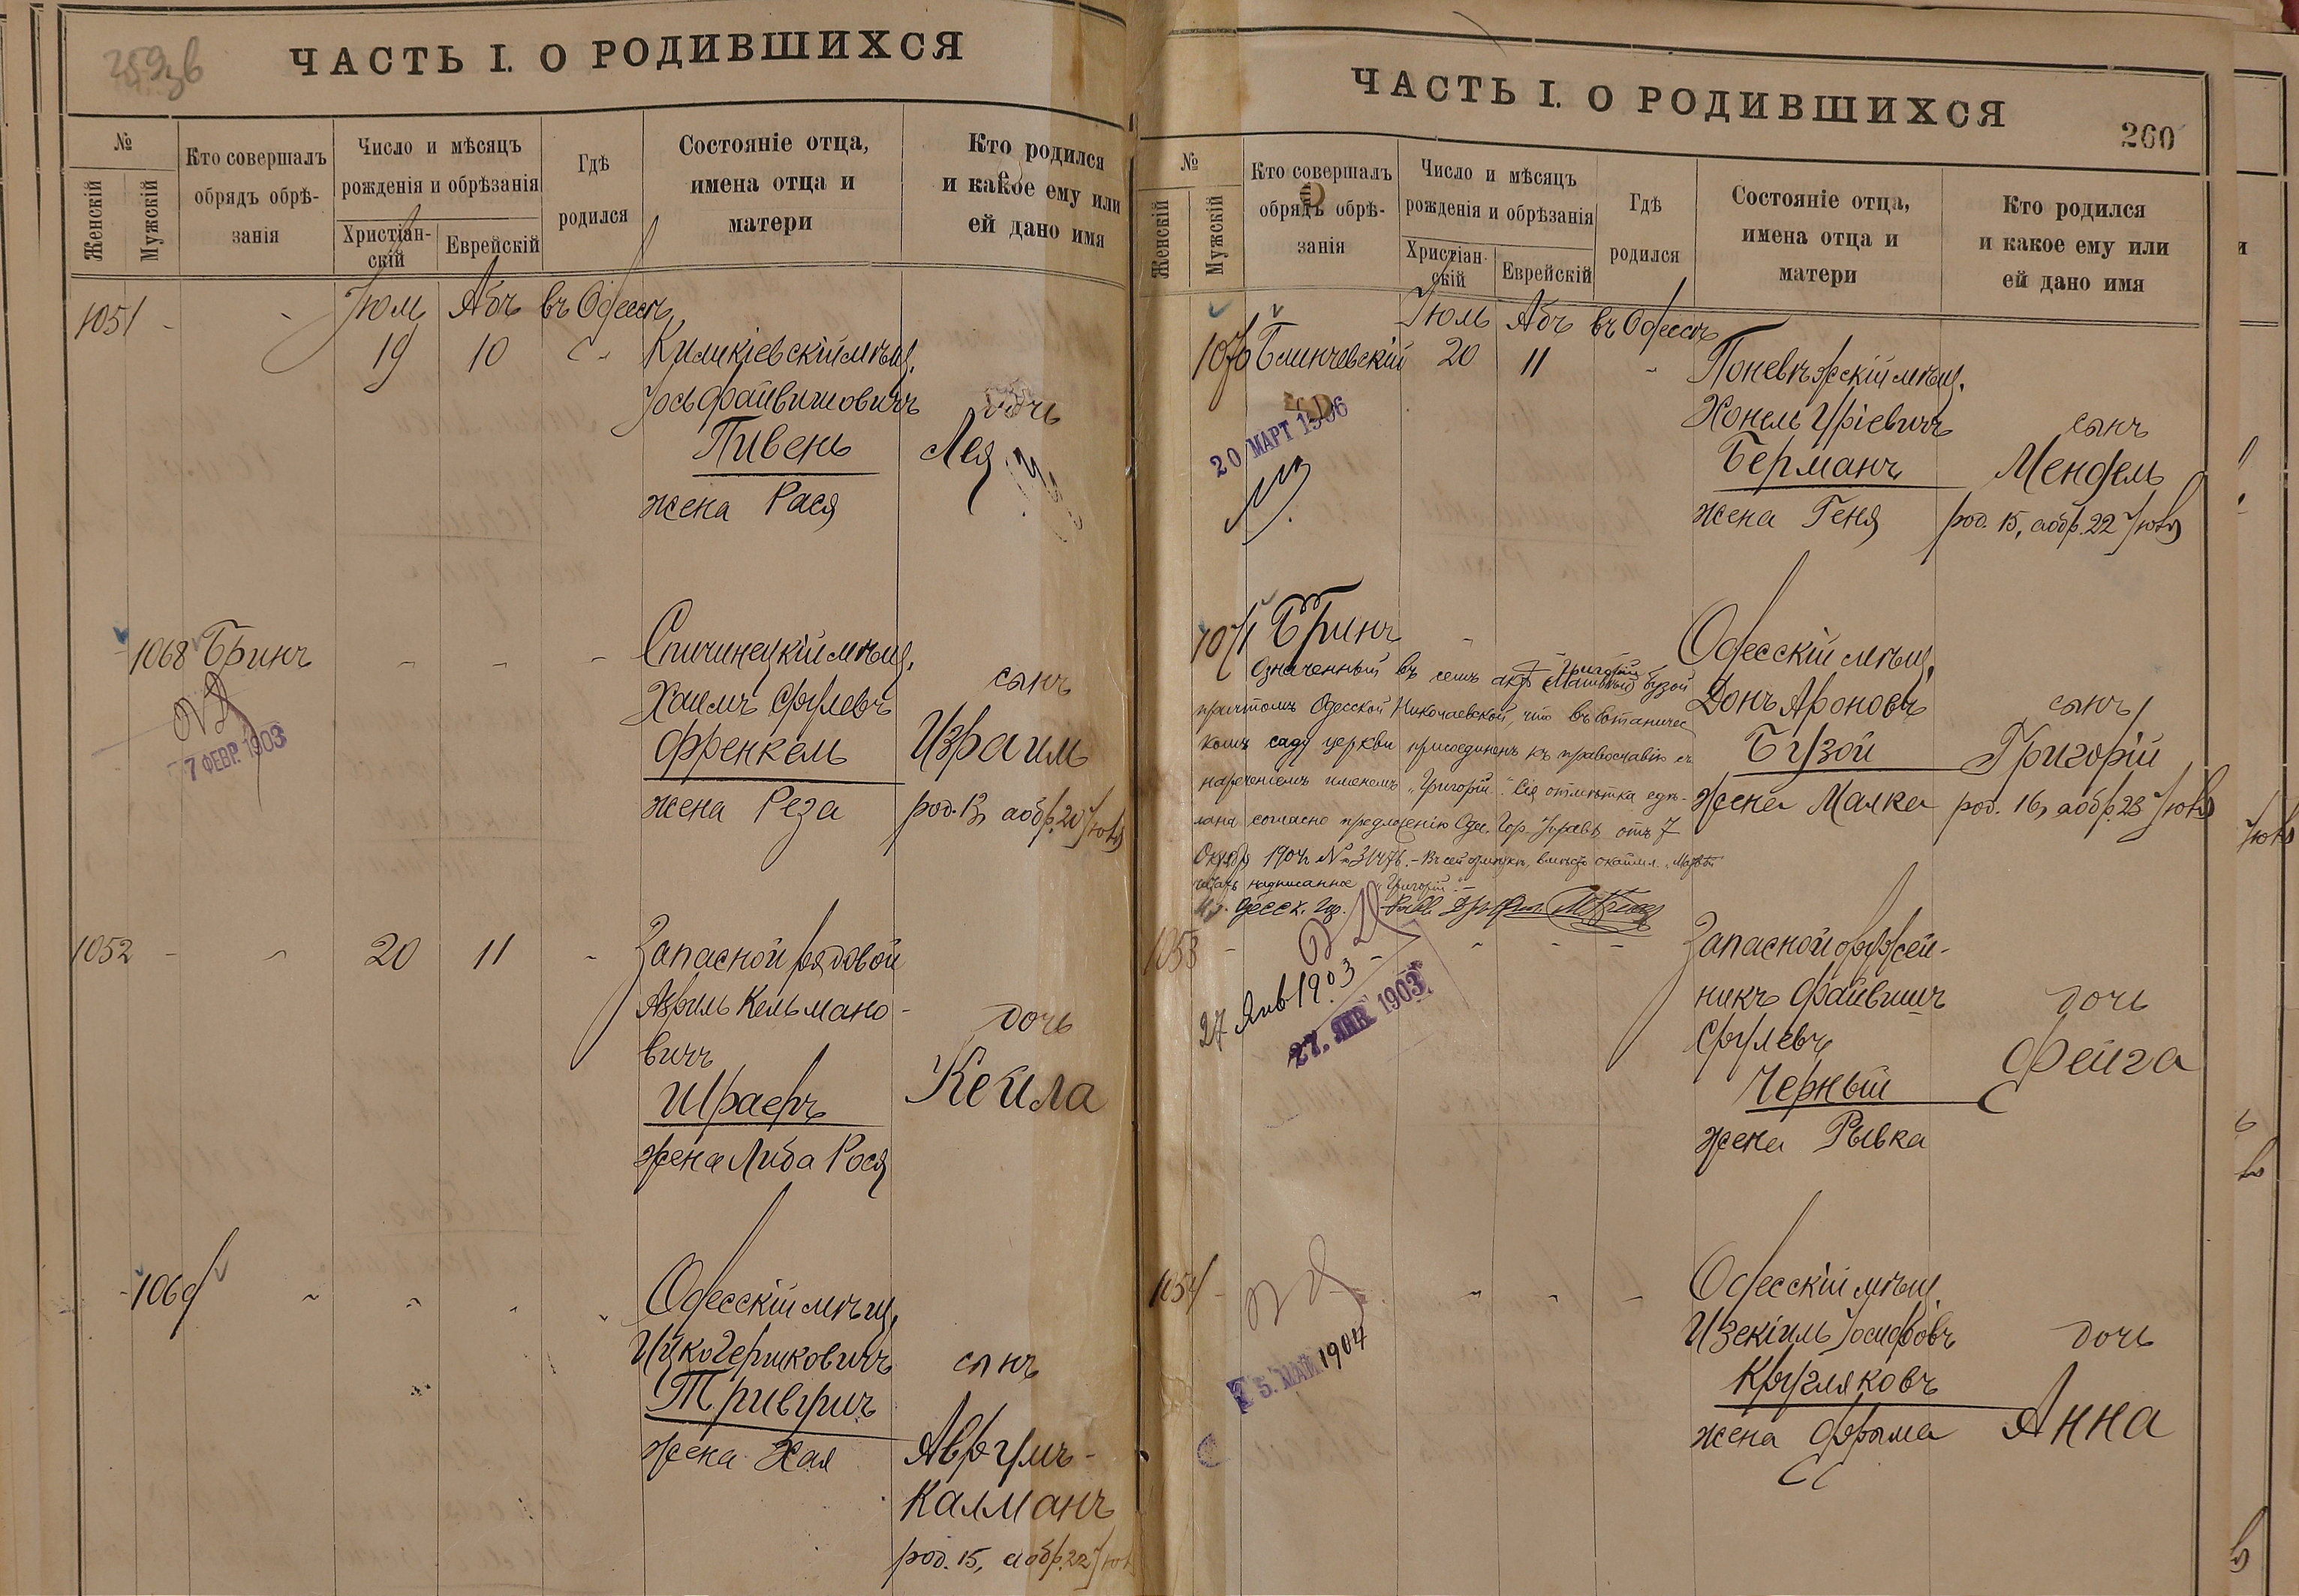 ЧАСТЬ I. О РОДИВШИХСЯ
№
Женскій
Мужскій
Кто совершалъ
обрядъ обрѣ-
занія
Число и мѣсяцъ
рожденія и обрѣзанія
Христіан-
скій
Еврейскій
Гдѣ
родился
Состояніе отца,
имена отца и
матери
Кто родился
и какое ему или
ей дано имя
1051
Іюль Абъ въ Одессѣ
19 10
мѣщ.
Пивень
жена Рася
дочь
Лея
1068 Бринъ
7 ФЕВР. 1903
Спичинецкій мѣщ.
Хаимъ Срулевъ
Френкель
жена Реза
сынъ
Израиль
род. 13, а обр. 20 Іюля
1052
20 11
Запасной рядовой
Азриль Кельмано-
вичъ
Шраеръ
жена Либа Рося
дочь
Кейла
1069
Одесскій мѣщ.
Ицко Гершковичъ
жена Хая
сынъ
Аврумъ-
Калманъ
род. 15, а обр. 22 Іюл
ЧАСТЬ I. О РОДИВШИХСЯ
260
№
Женскій
Мужскій
Кто совершалъ
обрядъ обрѣ-
занія
Число и мѣсяцъ
рожденія и обрѣзанія
Христіан-
скій
Еврейскій
Гдѣ
родился
Состояніе отца,
имена отца и
матери
Кто родился
и какое ему или
ей дано имя
Іюль Абъ въ Одессѣ
1070 Блинчевскій 20 11
20 МАРТ 1906
Поневѣжскій мѣщ.
Хонель Уріевичъ
Берманъ
жена Геня
сынъ
Мендель
род. 15, а обр. 22 Іюля
1071 Бринъ
Григорій
Означенный въ семъ актѣ Бузой
причтомъ Одесской Николаевской, что въ ботаничес
комъ саду церкви присоединенъ къ православію съ
нареченіемъ именемъ „Григорій“. Сія отмѣтка сдѣ-
лана согласно предложенію Одес. Гор. Управы отъ 7
Октября 1904 № 31476. –
читать надписанное „Григорій“. –
Одесск. Гор. Равв.
Одесскій мѣщ.
Донъ Ароновъ
Бузой
жена Малка
сынъ
Григорій
род. 16, а обр. 23 Іюля
1053
27 Янв 1903
27. ЯНВ 1903
Запасной оружей-
никъ Файвишъ
Срулевъ
Черный
жена Рывка
дочь
Фейга
1054
5. МАЙ 1904
Одесскій мѣщ.
Изекіиль Іосифовъ
Кругляковъ
жена Фрыма
дочь
Анна